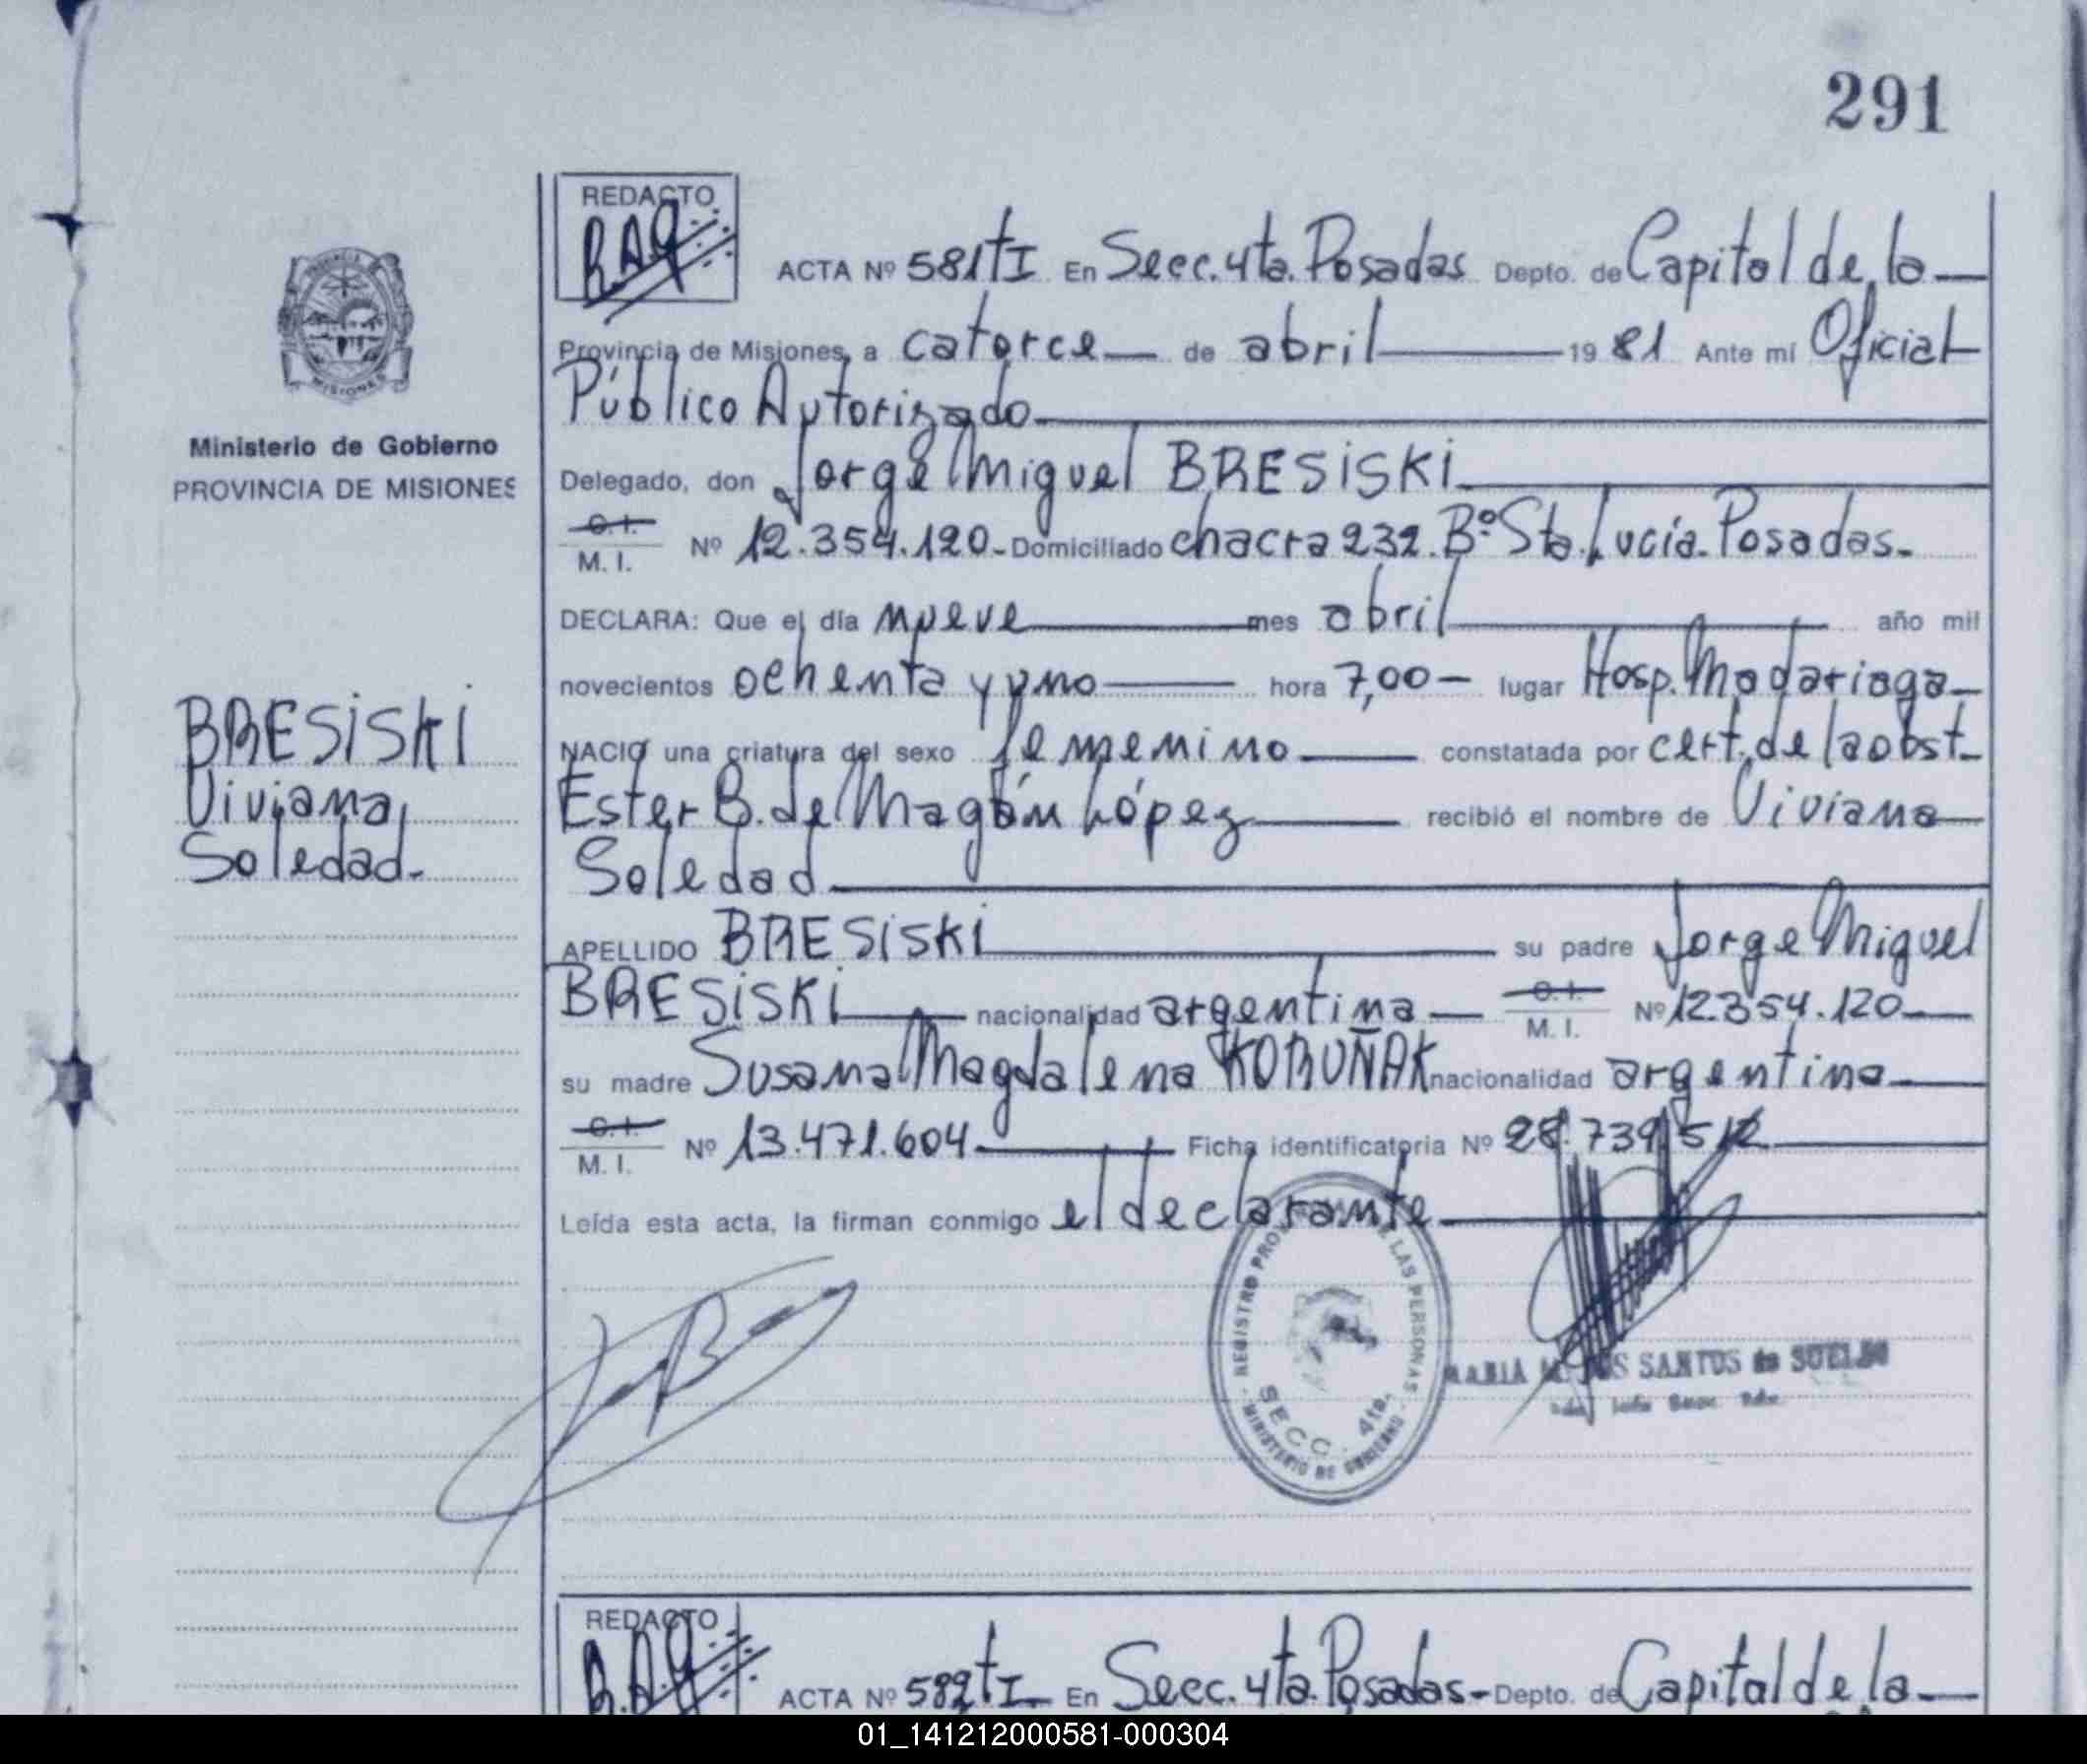 291
REDACTO
ACTA Nº 581 tI En Secc. 4ta. Posadas Depto. de Capital de la
Provincia de Misiones, a catorce de abril 1981 Ante mí Oficial
Público Autorizado
Delegado, don Jorge Miguel BRESiSKi
C. I.
M. I. Nº 12.354.120.- Domiciliado chacra 232. Bº Sta. Lucía. Posadas.
DECLARA: Que el día nueve mes abril año mil
novecientos ochenta y uno hora 7,00 lugar Hosp. Madariaga
NACIO una criatura del sexo femenino constatada por cert. de la obst.
Ester B. de Magán López recibió el nombre de Viviana
Soledad
APELLIDO BRESiSKi su padre Jorge Miguel
BRESiSKi nacionalidad argentina C. I. M. I. Nº 12.354.120
su madre Susana Magdalena KORUÑAK nacionalidad argentina
C. I.
M. I. Nº 13.471.604 Ficha identificatoria Nº 28.739.512
Leída esta acta, la firman conmigo el declarante
MISIONES
Ministerio de Gobierno
PROVINCIA DE MISIONES
BRESiSKi
Viviana
Soledad.
REGISTRO DE LAS PERSONAS
SECC. 4ta.
MINISTERIO DE GOBIERNO
SANTOS de SUELDO
REDACTO
ACTA Nº 582 tI En Secc. 4ta. Posadas - Depto. de Capital de la
01_141212000581-000304